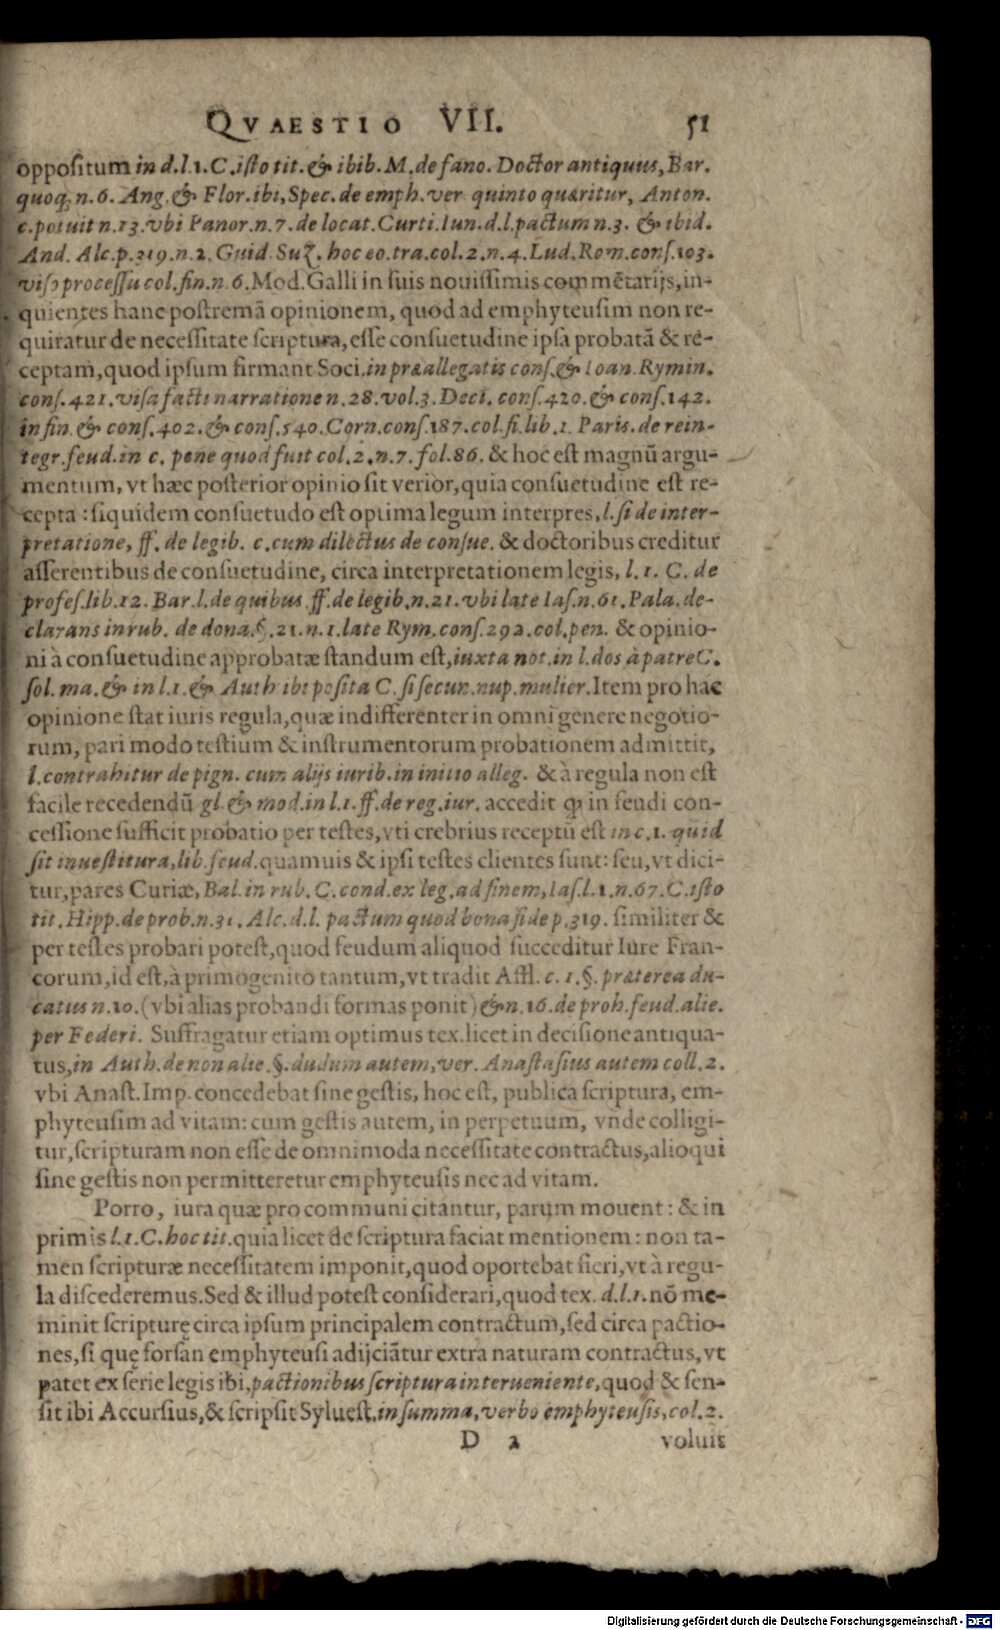 QVAESTIO VII. 51
oppositum in d.l.1. C. isto tit. & ibib. M. de fano. Doctor antiquus, Bar.
quoq; n. 6. Ang. & Flor. ibi, Spec. de emph. ver quinto quæritur, Anton.
c. potuit n. 13. vbi Panor. n. 7. de locat. Curti. Iun. d. l. pactum n. 3. & ibid.
And. Alc. p. 319. n. 2. Guid. Suz. hoc eo. tra. col. 2. n. 4. Lud. Rom. cons. 103.
viso processu col. fin. n. 6. Mod. Galli in suis nouissimis commẽtarijs, in-
quientes hanc postremã opinionem, quod ad emphyteusim non re-
quiratur de necessitate scriptura, esse consuetudine ipsa probatã & re-
ceptam, quod ipsum firmant Soci. in præallegatis cons. & Ioan. Rymin.
cons. 421. visa facti narratione n. 28. vol. 3. Deci. cons. 420. & cons. 142.
in fin. & cons. 402. & cons. 540. Corn. cons. 187. col. fi. lib. 1. Paris. de rein-
tegr. feud. in c. pene quod fuit col. 2. n. 7. fol. 86. & hoc est magnũ argu-
mentum, vt hæc posterior opinio sit verior, quia consuetudine est re-
cepta: siquidem consuetudo est optima legum interpres, l. si de inter-
pretatione, ff. de legib. c. cum dilectus de consue. & doctoribus creditur
asserentibus de consuetudine, circa interpretationem legis, l. 1. C. de
profes. lib. 12. Bar. l. de quibus ff. de legib. n. 21. vbi late Ias. n. 61. Pala. de-
clarans in rub. de dona. §. 21. n. 1. late Rym. cons. 292. col. pen. & opinio-
ni à consuetudine approbatæ standum est, iuxta not. in l. dos à patre C.
sol. ma. & in l. 1. & Auth ibi posita C. si secun. nup. mulier. Item pro hac
opinione stat iuris regula, quæ indifferenter in omni genere negotio-
rum, pari modo testium & instrumentorum probationem admittit,
l. contrahitur de pign. cum alijs iurib. in initio alleg. & à regula non est
facile recedendũ gl. & mod. in l. 1. ff. de reg. iur. accedit q; in feudi con-
cessione sufficit probatio per testes, vti crebrius receptũ est in c. 1. quid
sit inuestitura, lib. feud. quamuis & ipsi testes clientes sunt: seu, vt dici-
tur, pares Curiæ, Bal. in rub. C. cond. ex leg. ad finem, Ias. l. 1. n. 67. C. isto
tit. Hipp. de prob. n. 31. Alc. d. l. pactum quod bona fide p. 319. similiter &
per testes probari potest, quod feudum aliquod succeditur Iure Fran-
corum, id est, à primogenito tantum, vt tradit Affl. c. 1. §. præterea du-
catus n. 10. (vbi alias probandi formas ponit) & n. 16. de proh. feud. alie.
per Federi. Suffragatur etiam optimus tex. licet in decisione antiqua-
tus, in Auth. de non alie. §. dudum autem, ver. Anastasius autem coll. 2.
vbi Anast. Imp. concedebat sine gestis, hoc est, publica scriptura, em-
phyteusim ad vitam: cum gestis autem, in perpetuum, vnde colligi-
tur, scripturam non esse de omnimoda necessitate contractus, alioqui
sine gestis non permitteretur emphyteusis nec ad vitam.
Porro, iura quæ pro communi citantur, parum mouent: & in
primis l. 1. C. hoc tit. quia licet de scriptura faciat mentionem: non ta-
men scripturæ necessitatem imponit, quod oportebat fieri, vt à regu-
la discederemus. Sed & illud potest considerari, quod tex. d. l. 1. nõ me-
minit scripturę circa ipsum principalem contractum, sed circa pactio-
nes, si quę forsan emphyteusi adijciãtur extra naturam contractus, vt
patet ex serie legis ibi, pactionibus scriptura interueniente, quod & sen-
sit ibi Accursius, & scripsit Syluest. in summa, verbo emphyteusis, col. 2.
D 2 voluit
Digitalisierung gefördert durch die Deutsche Forschungsgemeinschaft - DFG